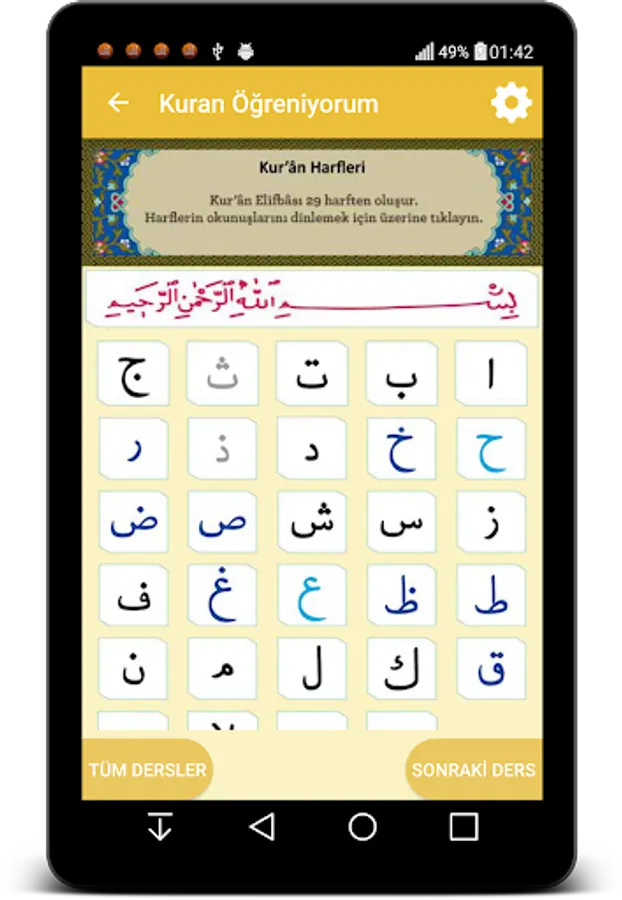 49% 01:42
Kuran Öğreniyorum
Kur’ân Harfleri
Kur’ân Elifbâsı 29 harften oluşur.
Harflerin okunuşlarını dinlemek için üzerine tıklayın.
بِسْـــــــــمِ اللّٰهِ الرَّحْمٰنِ الرَّحِيمِ
ا ب ت ث ج
ح خ د ذ ر
ز س ش ص ض
ط ظ ع غ ف
ق ك ل م ن
TÜM DERSLER
SONRAKİ DERS